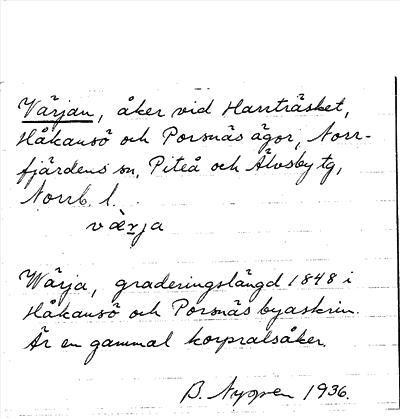 Värjan, åker vid Harrträsket,
Håkansö och Porsnäs ägor, Norr-
fjärdens sn, Piteå och Älvsby tg,
Norrb. l.
värja
Wärja, graderingslängd 1848 i
Håkansö och Porsnäs byaskrin.
Är en gammal korpralsåker.
B. Nygren 1936.